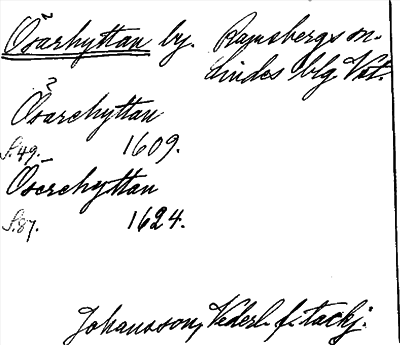 Ösarhyttan by. Ramsbergs sn.
Lindes blg Vst.
Ösarehyttan
S.49. 1609.
Öserehyttan
S.87. 1624.
Johansson, Vederl. f. tackj.